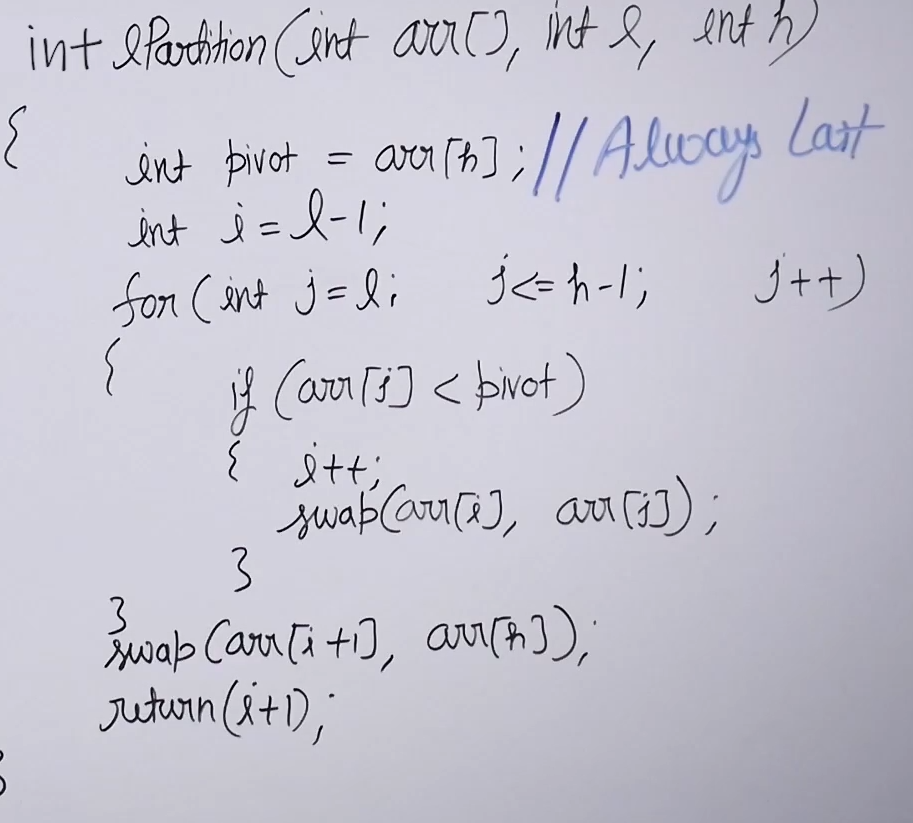 int lPartition(int arr[], int l, int h)
{
int pivot = arr[h]; // Always Last
int i = l-1;
for(int j=l; j<=h-1; j++)
{
if (arr[j] < pivot)
{ i++;
swap(arr[i], arr[j]);
}
}
swap(arr[i+1], arr[h]);
return(i+1);
}